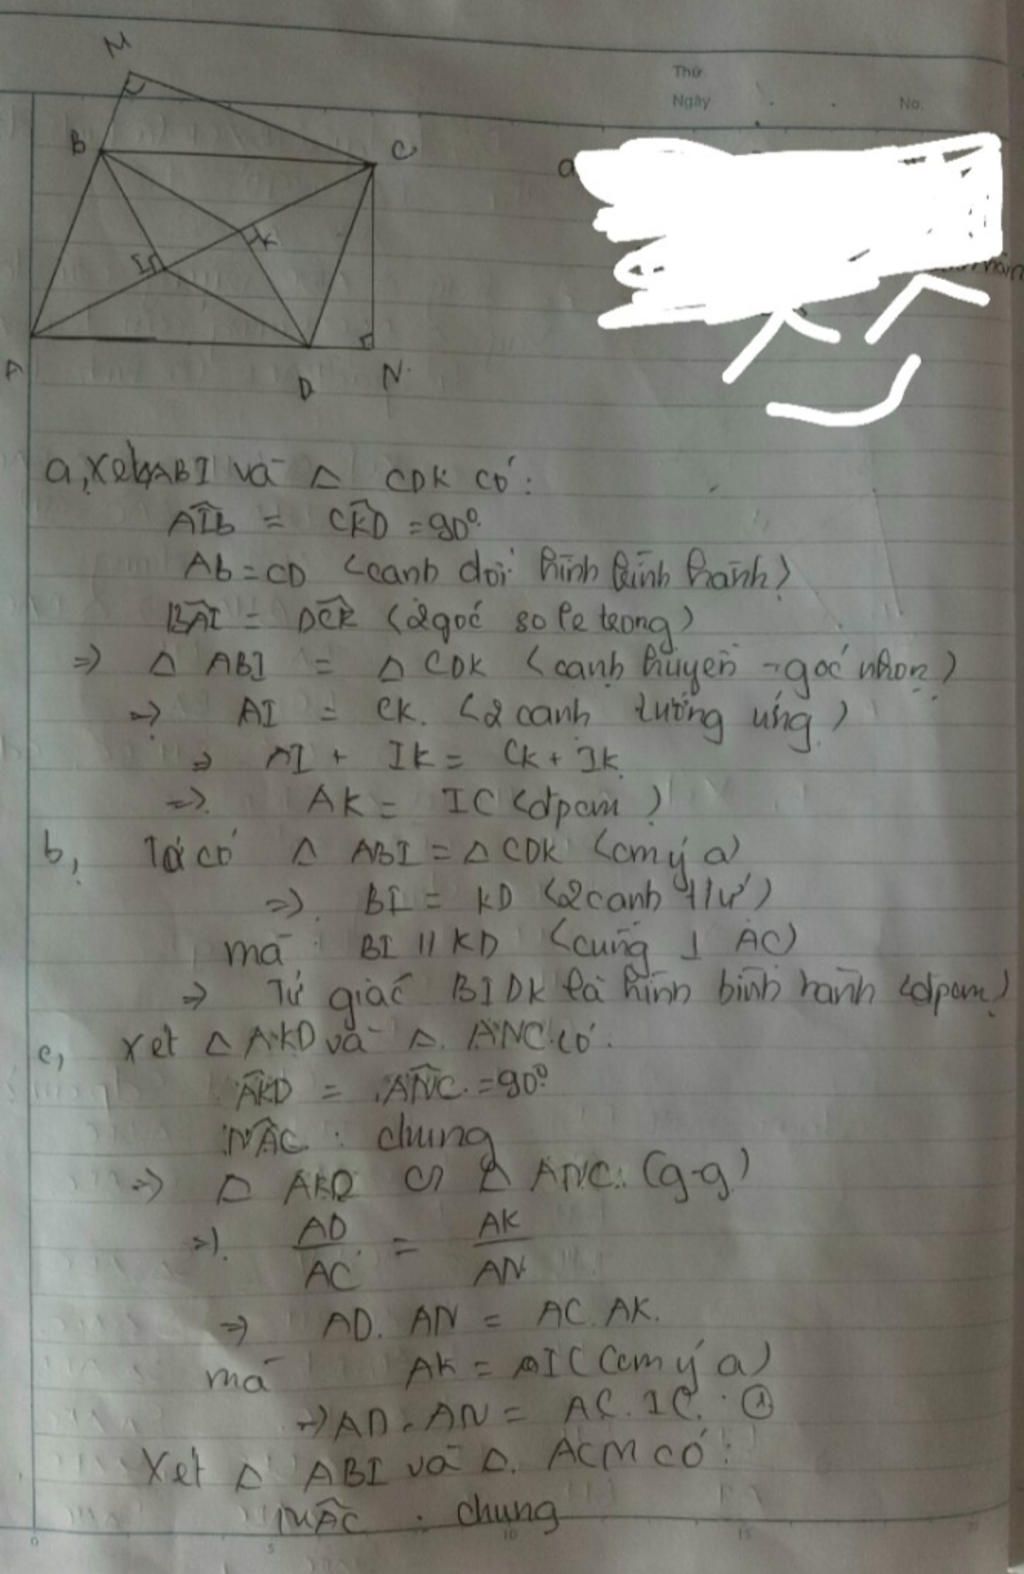 M
Thứ
Ngày No.
B
C
a
K
I
A
D
N
a, xét △ABI và △ CDK có:
AIb = CKD = 90°
Ab = CD (cạnh đối hình bình hành)
BAI = DCK (2 góc so le trong)
=> △ ABI = △ CDK (cạnh huyền - góc nhọn)
=> AI = CK. (2 cạnh tương ứng)
=> AI + IK = CK + IK
=> AK = IC (đpcm)
b, Ta có △ ABI = △ CDK (cm ý a)
=> BI = KD (2 cạnh t/ư)
mà BI // KD (cùng ⊥ AC)
=> Tứ giác BIDK là hình bình hành (đpcm)
c, xét △ AKD và △ ANC có:
AKD = ANC = 90°
NAC : chung
=> △ AKD ∽ △ ANC (g-g)
=> AD/AC = AK/AN
=> AD. AN = AC. AK.
mà AK = IC (cm ý a)
=> AD. AN = AC. IC. ①
Xét △ ABI và △ ACM có:
MAC : chung
0 5 10 15